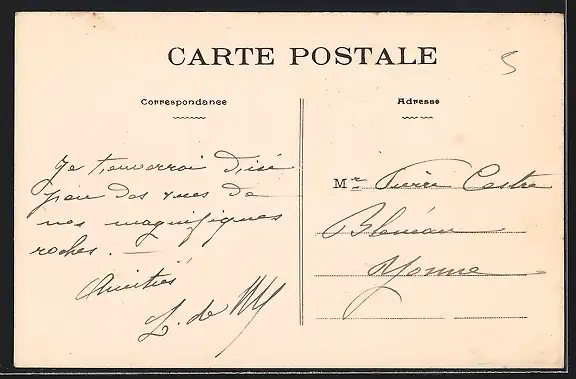 CARTE POSTALE
5
Correspondance
Adresse
Je t'enverrai d'ici
peu des vues de
nos magnifiques
roches. —
Amitiés
L. de
Mr. Pierre Castre
Bléneau
Yonne